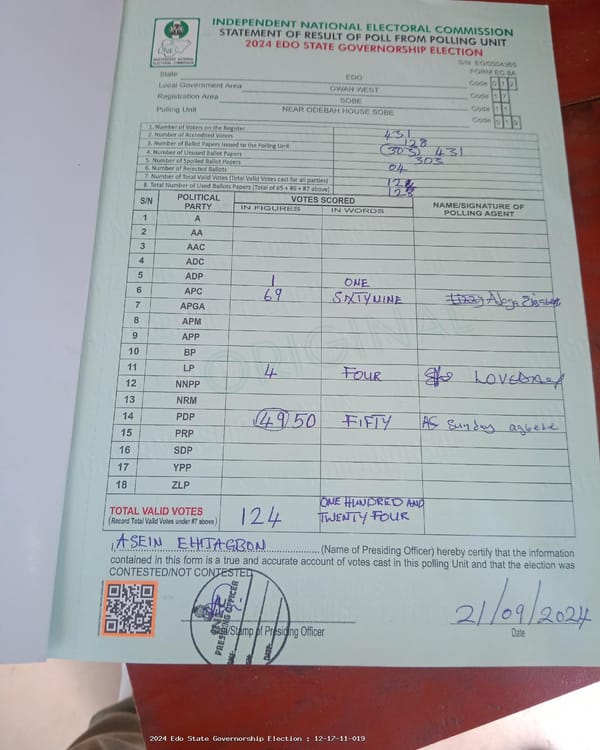 INDEPENDENT NATIONAL ELECTORAL COMMISSION
STATEMENT OF RESULT OF POLL FROM POLLING UNIT
2024 EDO STATE GOVERNORSHIP ELECTION
FORM EC 8A
State EDO Code 012
Local Government Area OWAN WEST Code 17
Registration Area SOBE Code 11
Polling Unit NEAR ODEBAH HOUSE SOBE Code 019
1. Number of Voters on the Register 431
2. Number of Accredited Voters 128
3. Number of Ballot Papers Issued to the Polling Unit (303) 431
4. Number of Unused Ballot Papers 303
5. Number of Spoiled Ballot Papers
6. Number of Rejected Ballots 04
7. Number of Total Valid Votes (Total Valid Votes cast for all parties) 124
8. Total Number of Used Ballots Papers (Total of #5 + #6 + #7 above) 128
S/N POLITICAL PARTY VOTES SCORED NAME/SIGNATURE OF POLLING AGENT
IN FIGURES IN WORDS
1 A
2 AA
3 AAC
4 ADC
5 ADP 1 ONE
6 APC 69 SIXTYNINE
7 APGA
8 APM
9 APP
10 BP
11 LP 4 FOUR
12 NNPP
13 NRM
14 PDP 49 50 FIFTY Sunday agbebe
15 PRP
16 SDP
17 YPP
18 ZLP
TOTAL VALID VOTES 124 ONE HUNDRED AND TWENTY FOUR
(Record Total Valid Votes under #7 above)
ORIGINAL
I, ASEIN EHITAGBON (Name of Presiding Officer) hereby certify that the information
contained in this form is a true and accurate account of votes cast in this polling Unit and that the election was
CONTESTED/NOT CONTESTED
PRESIDING OFFICER
Sign/Stamp of Presiding Officer
21/09/2024
Date
2024 Edo State Governorship Election : 12-17-11-019